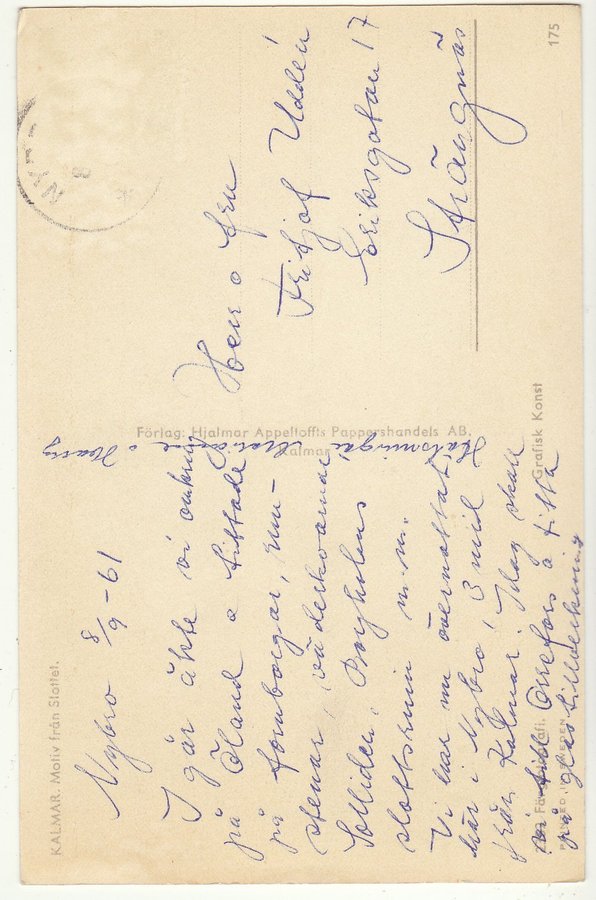 KALMAR. Motiv från Slottet.
Nybro 8/9 -61
I går åkte vi omkring
på Öland o tittade
på fornborgar, run-
stenar, väderkvarnar
Solliden, Borgholms
slottsruin m.m.
Vi har nu övernattat
här i Nybro, 3 mil
från Kalmar. Idag skall
vi till Orrefors å titta
på glastillverkning
Hälsningar
Förlag: Hjalmar Appeltoffts Pappershandels AB.
Kalmar
Grafisk Konst
PRINTED IN SWEDEN
NYBRO
Herr o Fru
Fritjof Uddén
Eriksgatan 17
Strängnäs
175